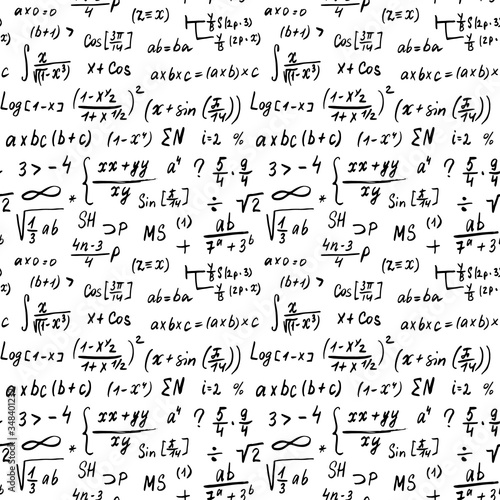 a×0=0 (b+1)> (z≡x) S(2p·3) a×0=0 (b+1)> (z≡x) S(2p·3)
Cos[3π/14] ab=ba (2p·x) Cos[3π/14] ab=ba (2p·x)
c ∫ x/√(1-x³) x+Cos a×b×c=(a×b)×c ∫ x/√(1-x³) x+Cos a×b×c=(a×b)×c
Log[1-x] ((1-x½)/(1+x1/2))² (x+sin(π/14)) Log[1-x] ((1-x½)/(1+x1/2))² (x+sin(π/14))
a×bc(b+c) (1-x⁴) ΣN i=2 % a×bc(b+c) (1-x⁴) ΣN i=2 %
3>-4 { xx+yy/xy a⁴ ? 5/4·9/4 3>-4 { xx+yy/xy a⁴ ? 5/4·9/4
√2 ∞ * Sin[π/14] ÷ √2 ∞ * Sin[π/14] ÷ √2
√(1/3 ab) SH ⊃P MS (1) ab/7ᵃ+3ᵇ √(1/3 ab) SH ⊃P MS (1) ab/7ᵃ+3ᵇ
4n-3/4 P + 4n-3/4 P +
a×0=0 (b+1)> (z≡x) S(2p·3) a×0=0 (b+1)> (z≡x) S(2p·3)
Cos[3π/14] ab=ba (2p·x) Cos[3π/14] ab=ba (2p·x)
c ∫ x/√(1-x³) x+Cos a×b×c=(a×b)×c ∫ x/√(1-x³) x+Cos a×b×c=(a×b)×c
Log[1-x] ((1-x½)/(1+x1/2))² (x+sin(π/14)) Log[1-x] ((1-x½)/(1+x1/2))² (x+sin(π/14))
a×bc(b+c) (1-x⁴) ΣN i=2 % a×bc(b+c) (1-x⁴) ΣN i=2 %
3>-4 { xx+yy/xy a⁴ ? 5/4·9/4 3>-4 { xx+yy/xy a⁴ ? 5/4·9/4
√2 ∞ * Sin[π/14] ÷ √2 ∞ * Sin[π/14] ÷ √2
√(1/3 ab) SH ⊃P MS (1) ab/7ᵃ √(1/3 ab) SH ⊃P MS (1) ab/7ᵃ
4n-3 + 4n-3 +